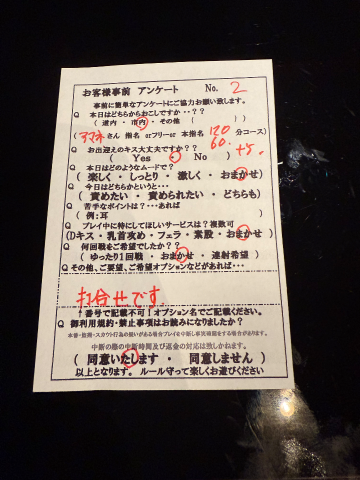 お客様事前 アンケート No. 2
事前に簡単なアンケートにご協力お願い致します。
Q 本日はどちらからおこしですか・・??
( 道内 ・ 市内 ・ その他 ( ) )
( アマネ さん 指名 orフリーor 本指名 120 分コース)
60.
Q お出迎えのキス大丈夫ですか?? +5.
( Yes ・ No )
Q 本日はどのようなムードで?
( 楽しく ・ しっとり ・ 激しく ・ おまかせ )
Q 今日はどちらかというと・・・
( 責めたい ・ 責められたい ・ どちらも )
Q 苦手なポイントは?・・・あれば
( 例:耳 )
Q プレイ中に特にしてほしいサービスは?複数可
(Dキス・乳首攻め・フェラ・素股・おまかせ )
Q 何回戦をご希望でしたか??
( ゆったり1回戦 ・ おまかせ ・ 連射希望 )
Q その他、ご要望、ご希望オプションなどがあれば・・・
打合せです
↑番号で記載不可!オプション名でご記載ください。
Q 御利用規約・禁止事項はお読みになりましたか?
中断の際の中断時間及び返金の対応は致しかねます。
( 同意いたします ・ 同意しません )
以上となります。 ルール守って楽しくお遊びください